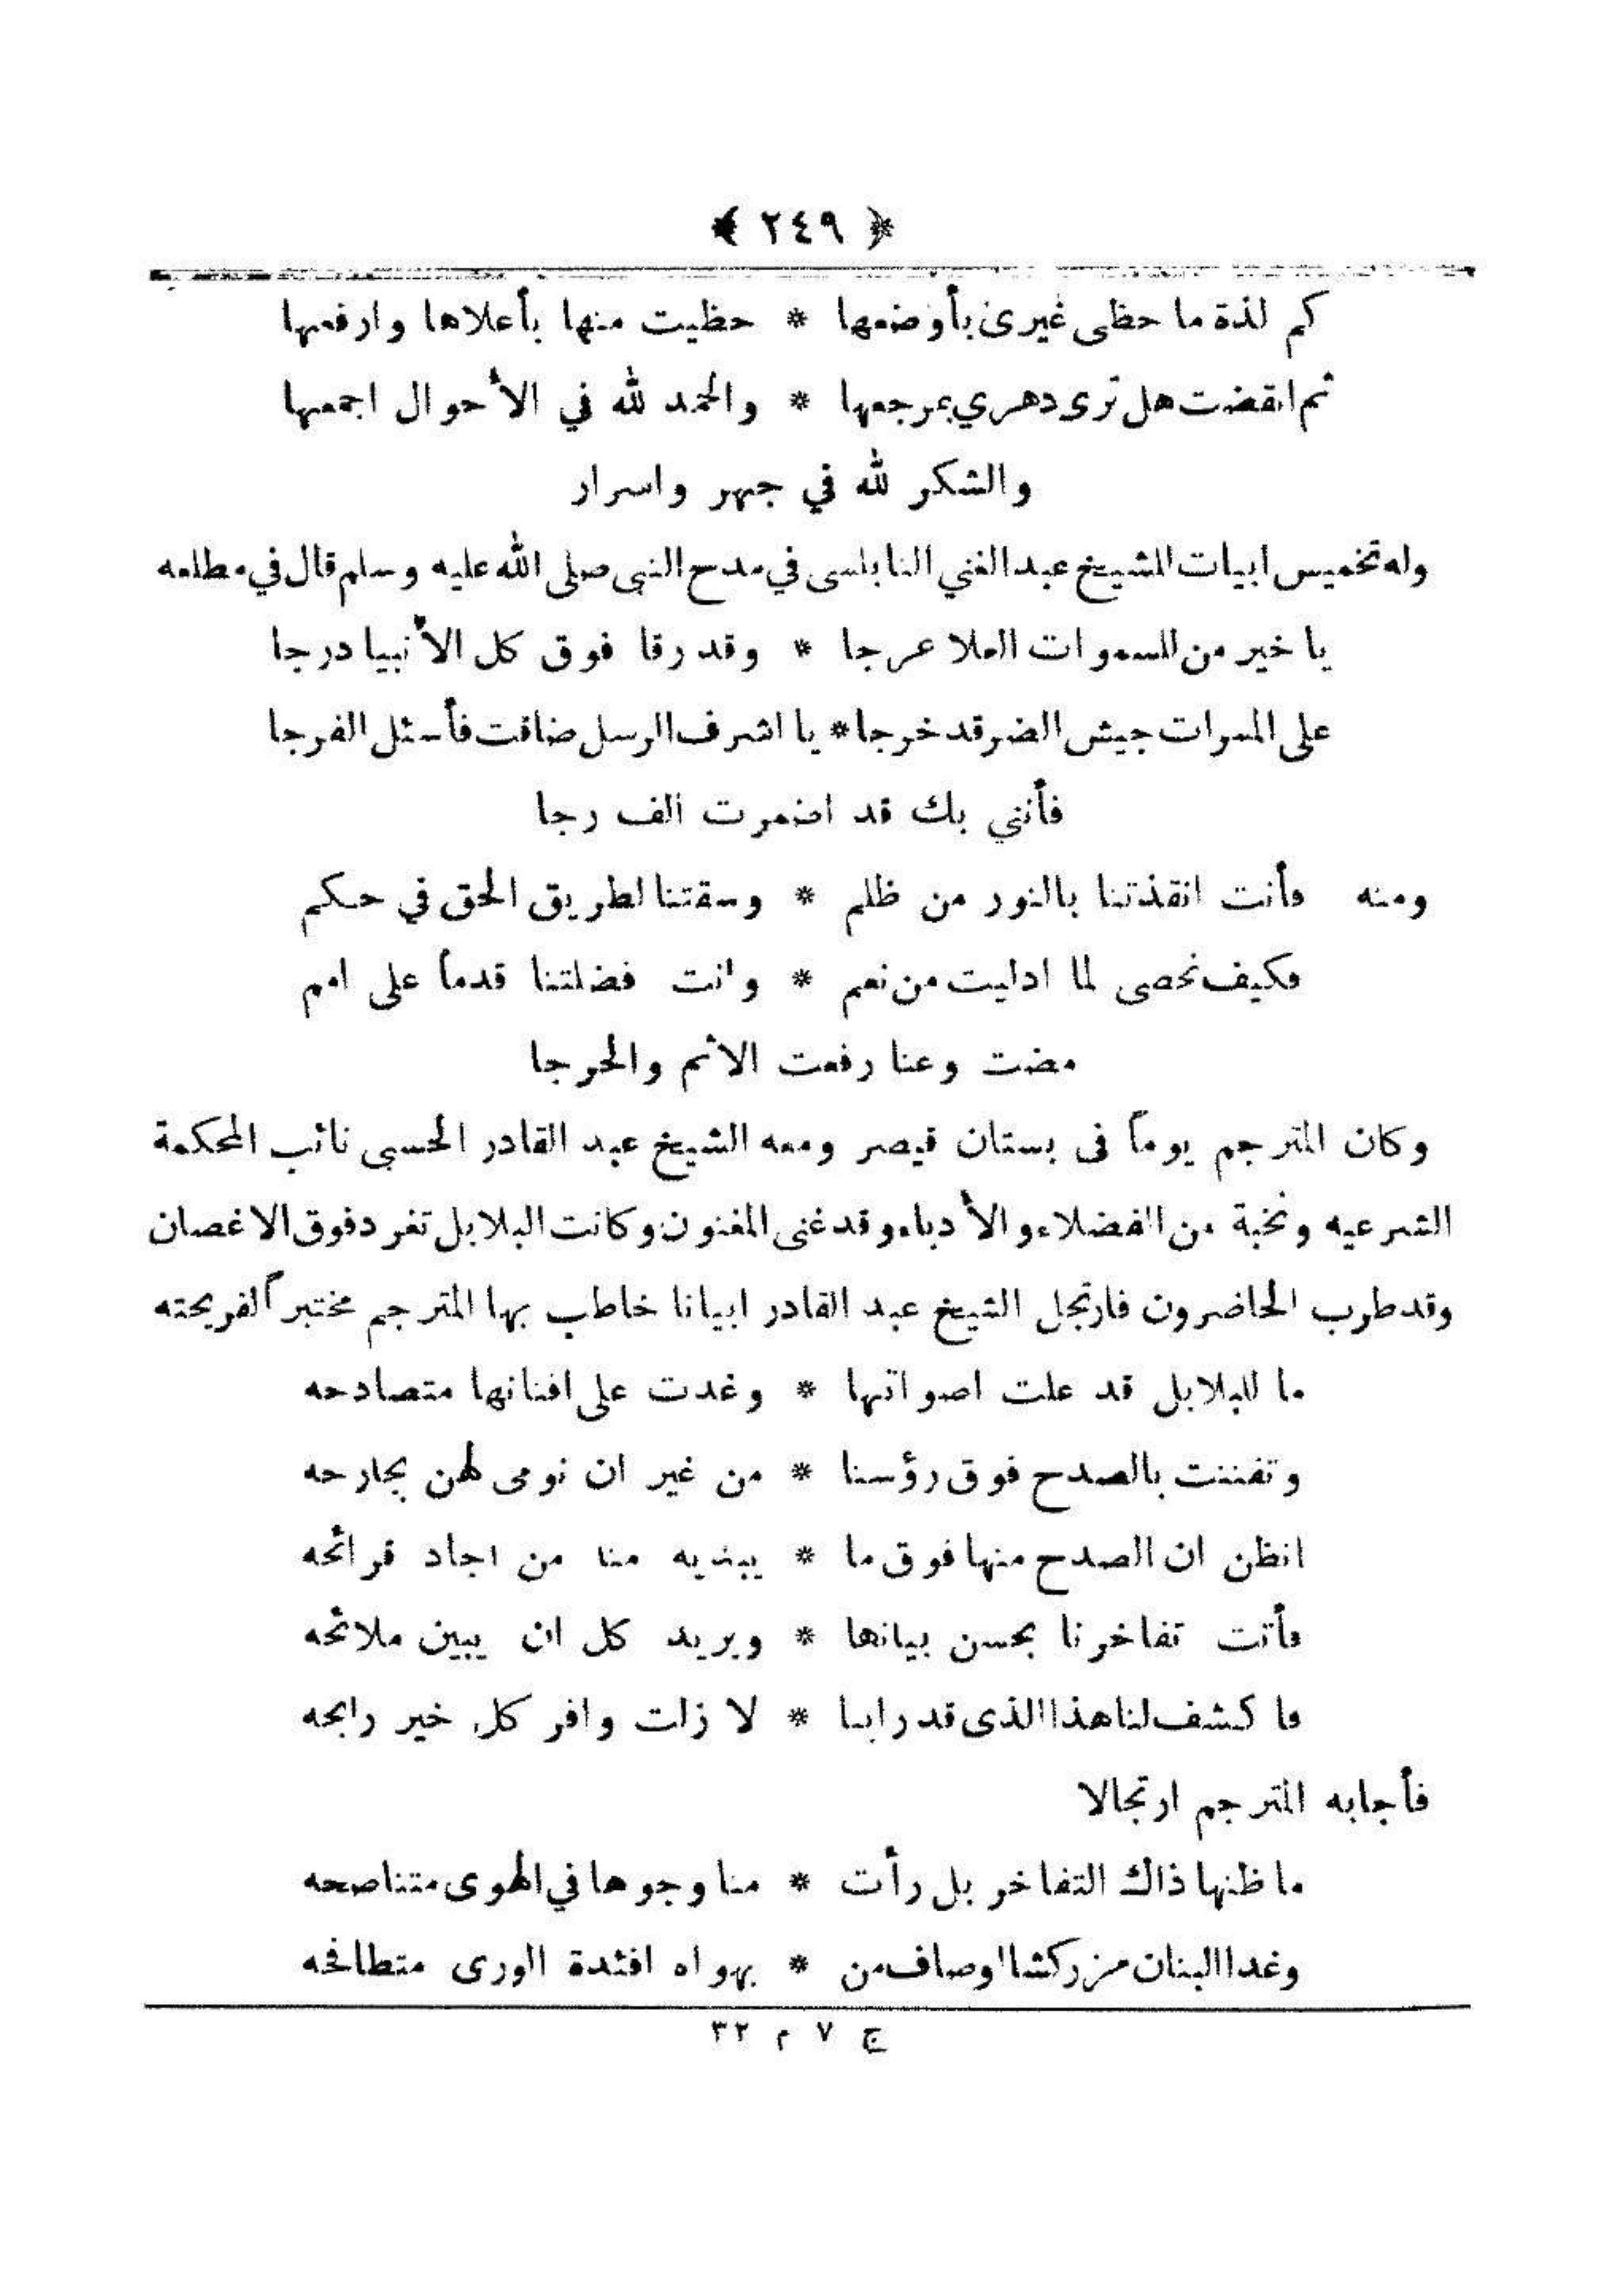 ﴿ ٢٤٩ ﴾
كم لذة ما حظى غيرى بأوضعها * حظيت منها بأعلاها وارفعها
ثم انقضت هل ترى دهري بمرجعها * والحمد لله في الأحوال اجمعها
والشكر لله في جهر واسرار
وله تخميس ابيات للشيخ عبد الغني النابلسى في مدح النبى صلى الله عليه وسلم قال في مطلعه
يا خير من للسموات العلا عرجا * وقد رقا فوق كل الأنبيا درجا
على المسرات جيش الضر قد خرجا * يا اشرف الرسل ضاقت فأسئل الفرجا
فأنني بك قد اضمرت الف رجا
ومنه فأنت انقذتنا بالنور من ظلم * وسقتنا لطريق الحق في حكم
فكيف نحصى لما اوليت من نعم * وانت فضلتنا قدماً على امم
مضت وعنا رفعت الاثم والحرجا
وكان المترجم يوماً فى بستان قيصر ومعه الشيخ عبد القادر الحسبى نائب المحكمة
الشرعيه ونخبة من الفضلاء والأدباء وقد غنى المغنون وكانت البلابل تغرد فوق الاغصان
وقد طرب الحاضرون فارتجل الشيخ عبد القادر ابياتا خاطب بها المترجم مختبراً لقريحته
ما للبلابل قد علت اصواتها * وغدت على افنانها متصادحه
وتفننت بالصدح فوق رؤسنا * من غير ان نومى لهن بجارحه
انظن ان الصدح منها فوق ما * يبديه منا من اجاد قرائحه
فأتت تفاخرنا بحسن بيانها * ويريد كل ان يبين ملائحه
فاكشف لنا هذا الذى قد رابنا * لا زلت وافر كل خير رابحه
فأجابه المترجم ارتجالا
ما ظنها ذاك التفاخر بل رأت * منا وجوها في الهوى متناصحه
وغدا البنان مزركشا اوصاف من * بهواه افئدة الورى متطافحه
ج ٧ م ٣٢